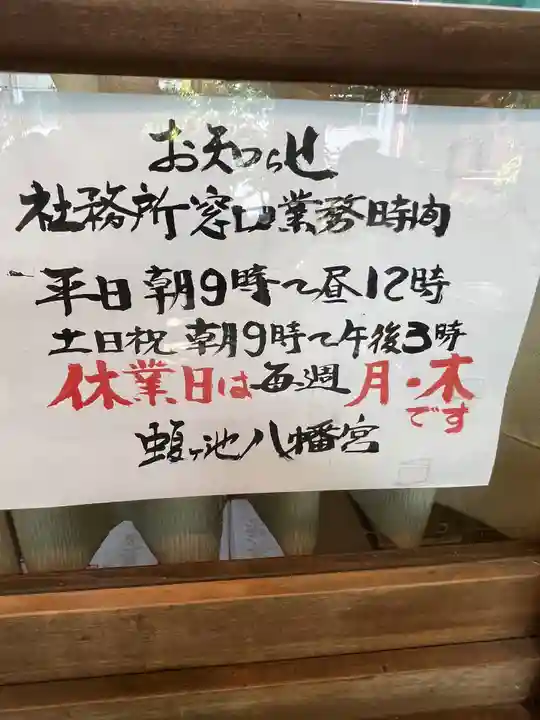 お知らせ
社務所窓口業務時間
平日 朝9時〜昼12時
土日祝 朝9時〜午後3時
休業日は毎週 月・木です
蝮ヶ池八幡宮